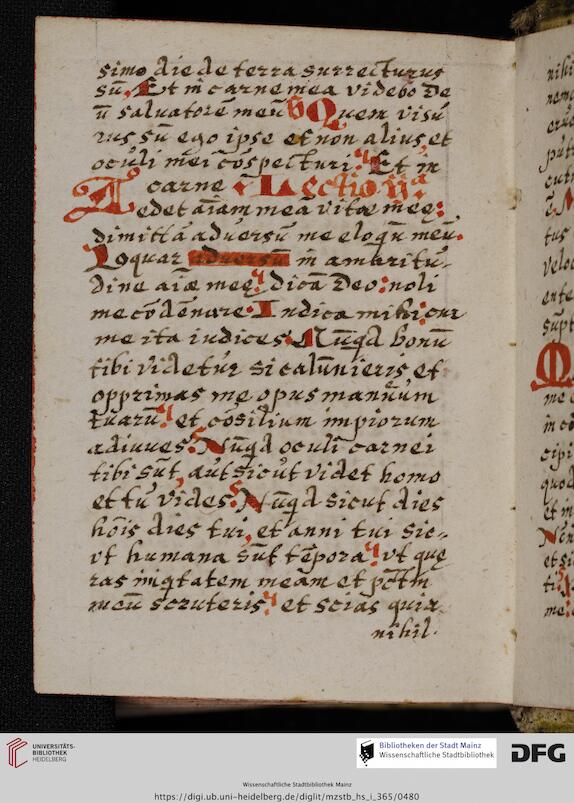 simo die de terra surrecturus
sū, Et in carne mea videbo De
ū salvatorē meū V Quem visu
rus sū ego ipse et non alius, et
oculi mei cōspecturi. Et in
carne Lectio ija
Tedet aīam meā vitæ męę:
dimittā adversū me eloqū meū.
Loquar adversū in amaritu-
dine aiæ męę, dicā Deo: noli
me cōdēnare. Indica mihi: cur
me ita iudices. Nūqd bonū
tibi videtur si calūnieris et
opprimas me opus manuum
tuarū, et cōsilium impiorum
adiuves. Nūqd oculi carnei
tibi sūt, aut sicut videt homo
et tu vides. Nūqd sicut dies
hōis dies tui, et anni tui sic-
ut humana sūt tēpora, ut quę
ras iniqtatem meam et pctm
meū scruteris, et scias quia
nihil.
UNIVERSITÄTS-
BIBLIOTHEK
HEIDELBERG
Bibliotheken der Stadt Mainz
Wissenschaftliche Stadtbibliothek
DFG
Wissenschaftliche Stadtbibliothek Mainz
https://digi.ub.uni-heidelberg.de/diglit/mzstb_hs_i_365/0480